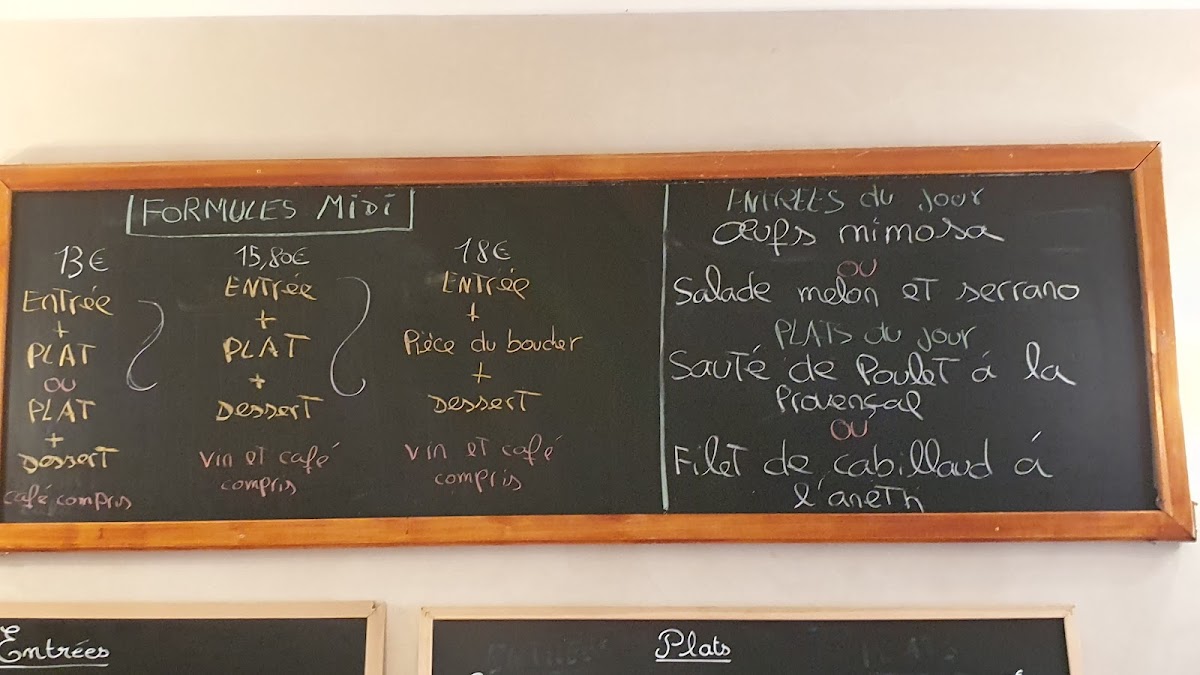 FORMULES MiDi
13€
ENTrée
+
PLAT
ou
PLAT
+
Dessert
café compris
15,80€
ENTrée
+
PLAT
+
Dessert
vin et café
compris
18€
ENTrée
+
Pièce du boucher
+
Dessert
vin et café
compris
ENTREES du jour
œufs mimosa
ou
Salade melon et serrano
PLATS du jour
Sauté de Poulet à la
Provençal
OU
Filet de cabillaud à
l'aneth
Entrées
Plats